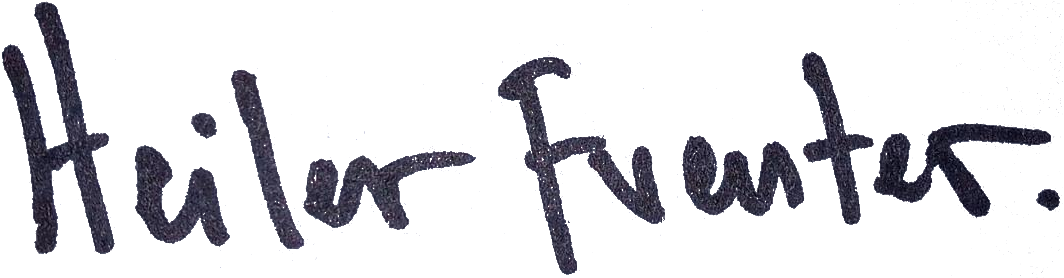 Heiler Fuenter.